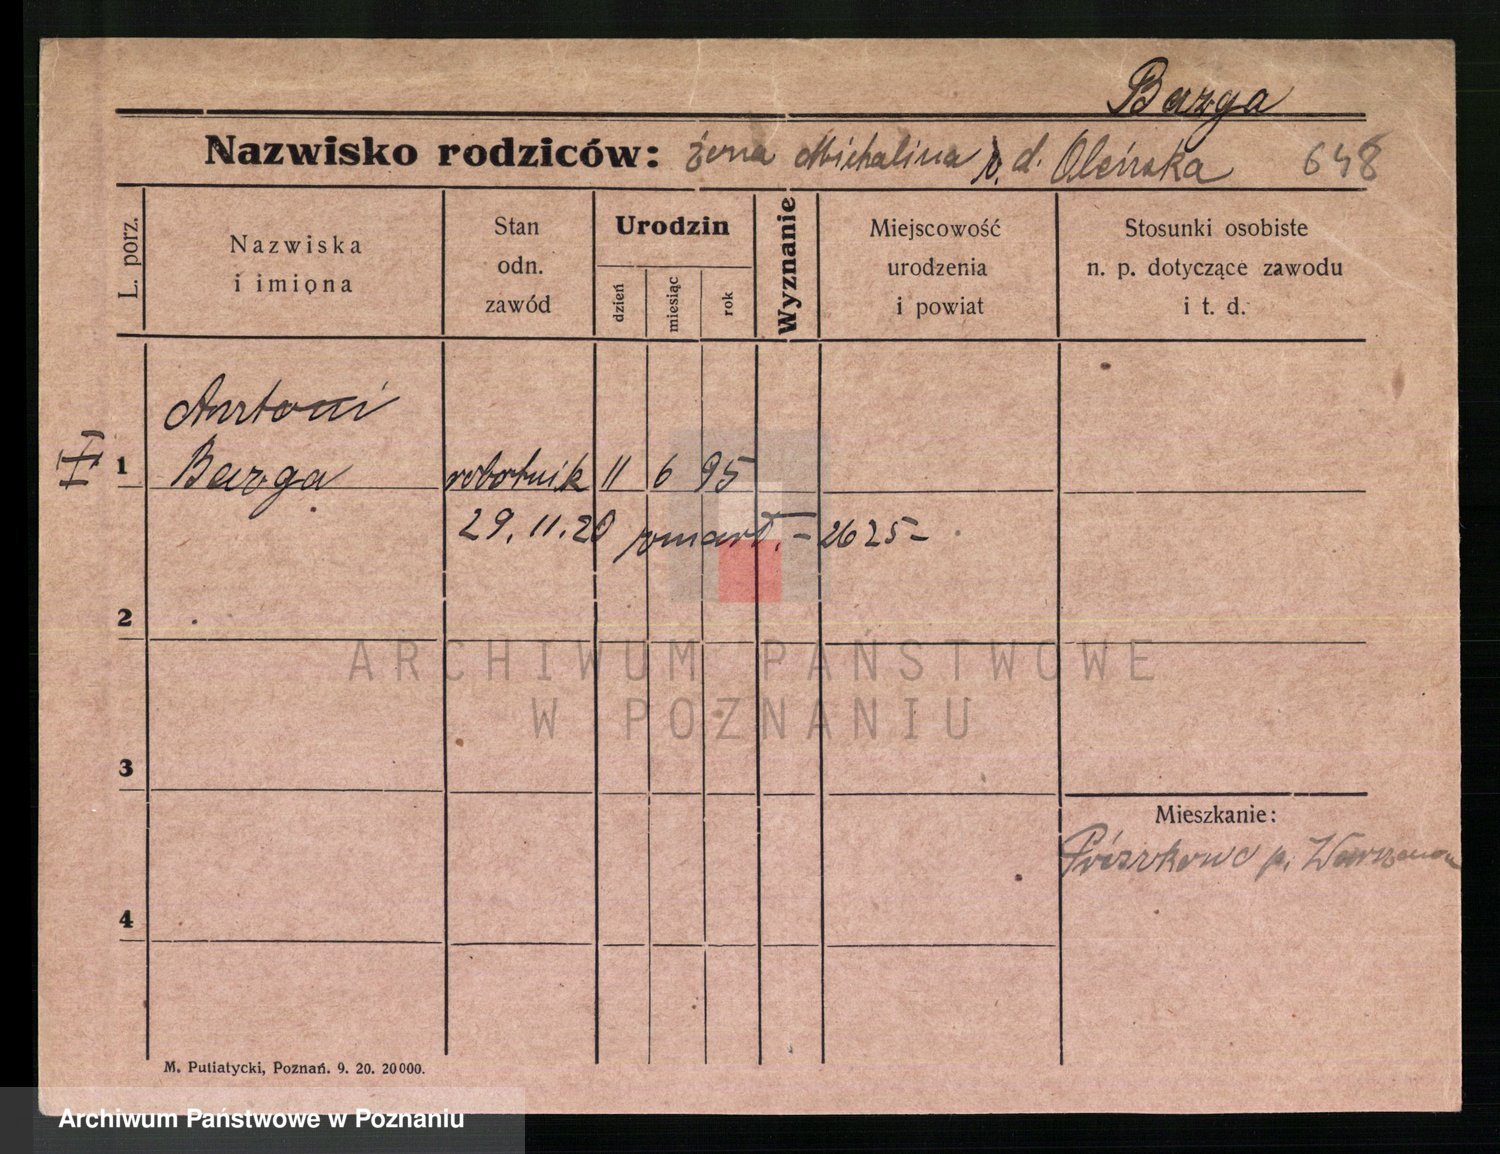 Bazga
Nazwisko rodziców: żona Michalina d. Oleńska 648
L. porz.
Nazwiska
i imiona
Stan
odn.
zawód
Urodzin
dzień
miesiąc
rok
Wyznanie
Miejscowość
urodzenia
i powiat
Stosunki osobiste
n. p. dotyczące zawodu
i t. d.
II
1
Antoni
Bazga
robotnik 11 6 95
29.11.20 zmarł. - 2625-
2
3
4
Mieszkanie:
ARCHIWUM PAŃSTWOWE
W POZNANIU
M. Putiatycki, Poznań. 9. 20. 20000.
Archiwum Państwowe w Poznaniu